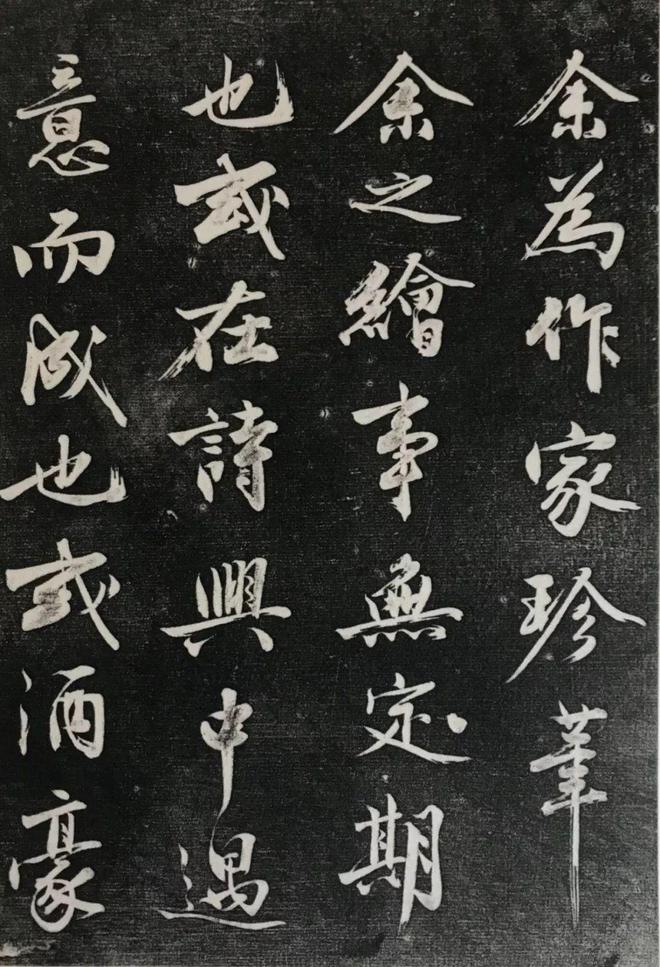 余為作家珍筆
余之繪事無定期
也或在詩興中遇
意而成也或酒豪